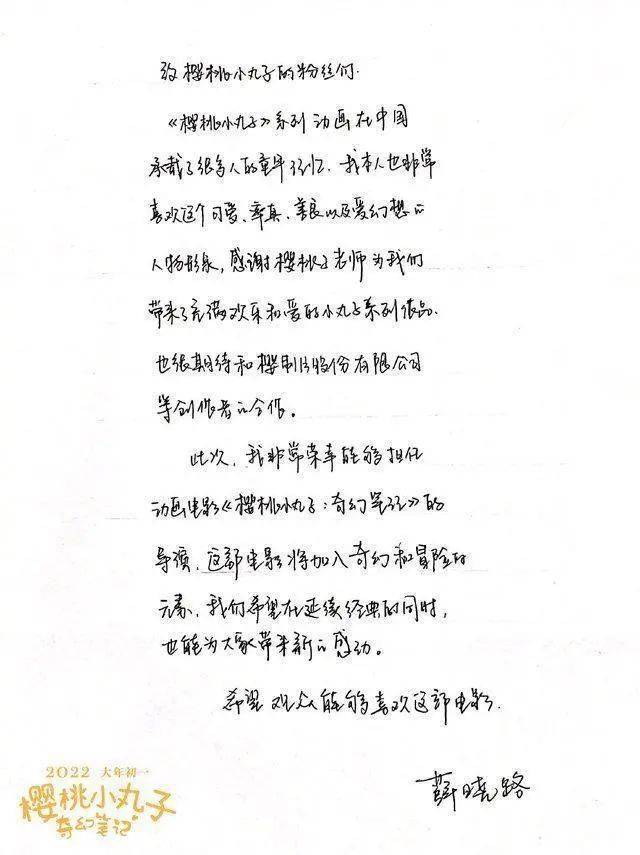 致樱桃小丸子的粉丝们.
《樱桃小丸子》系列动画在中国
承载了很多人的童年记忆. 我本人也非常
喜欢这个可爱、率真、善良以及爱幻想的
人物形象, 感谢樱桃子老师为我们
带来了充满欢乐和爱的小丸子系列作品.
也很期待和樱制片股份有限公司
等创作者的合作。
此次, 我非常荣幸能够担任
动画电影《樱桃小丸子: 奇幻笔记》的
导演, 这部电影将加入奇幻和冒险的
元素, 我们希望在延续经典的同时,
也能为大家带来新的感动。
希望观众能够喜欢这部电影.
薛晓路
2022 大年初一
樱桃小丸子
"奇幻笔记"